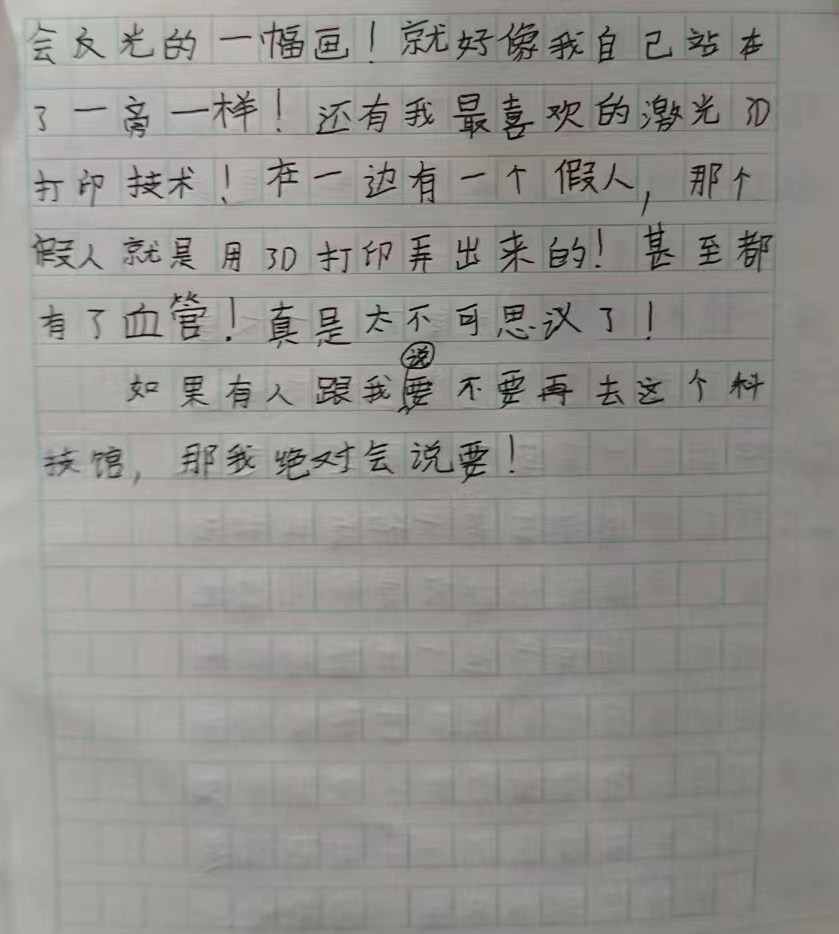 会反光的一幅画！就好像我自己站在
了一旁一样！还有我最喜欢的激光3D
打印技术！在一边有一个假人，那个
假人就是用3D打印弄出来的！甚至都
有了血管！真是太不可思议了！
说
如果有人跟我要不要再去这个科
技馆，那我绝对会说要！